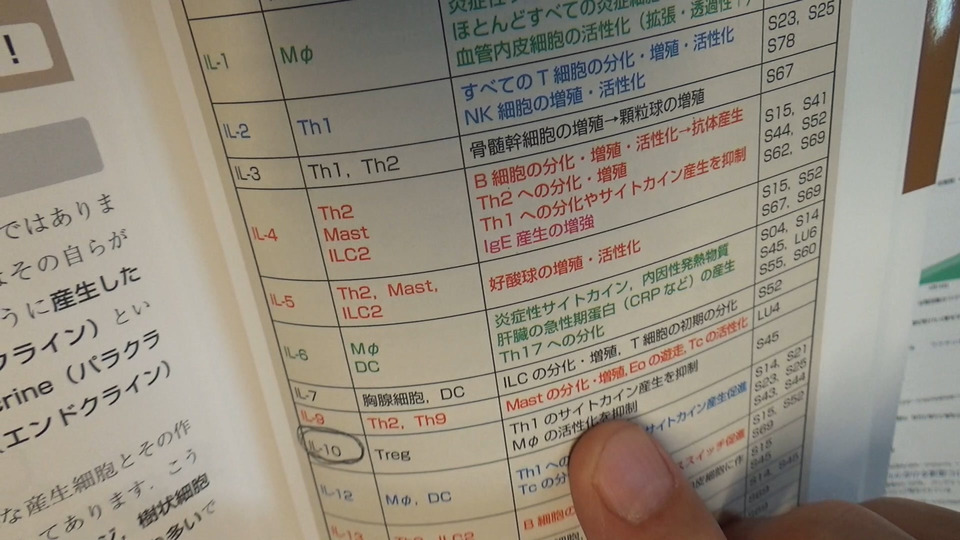 !
ではありま
はその自らが
うに産生した
クライン）とい
crine（パラクラ
エンドクライン）
な産生細胞とその作
てあります．こう
樹状細胞
多いで
ほとんどすべての炎症細胞
IL-1 Mφ 血管内皮細胞の活性化（拡張・透過性↑）
IL-2 Th1 すべての T 細胞の分化・増殖・活性化 S23, S25
NK 細胞の増殖・活性化 S78
IL-3 Th1, Th2 骨髄幹細胞の増殖→顆粒球の増殖 S67
IL-4 Th2 B 細胞の分化・増殖・活性化→抗体産生 S15, S41
Mast Th2 への分化・増殖 S44, S52
ILC2 Th1 への分化やサイトカイン産生を抑制 S62, S69
IgE 産生の増強
IL-5 Th2, Mast, 好酸球の増殖・活性化 S15, S52
ILC2 S67, S69
IL-6 Mφ 炎症性サイトカイン，内因性発熱物質 S04, S14
DC 肝臓の急性期蛋白（CRP など）の産生 S45, LU6
Th17 への分化 S55, S60
IL-7 胸腺細胞, DC ILC の分化・増殖, T 細胞の初期の分化 S52
IL-9 Th2, Th9 Mast の分化・増殖, Eo の遊走, Tc の活性化 LU4
IL-10 Treg Th1 のサイトカイン産生を抑制 S45
Mφ の活性化を抑制
IL-12 Mφ, DC Th1 への サイトカイン産生促進 S14, S21
Tc の分 S23, S25
S43, S44
IL-13 Th2, ILC2 B 細胞の スイッチ促進 S15, S52
S69
皮細胞に作 S15
S45
S14, S45
S69